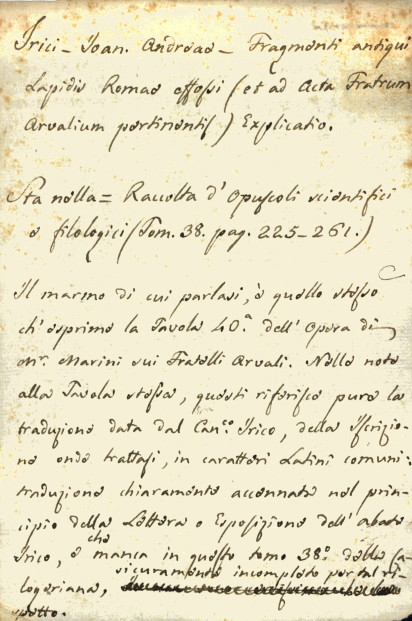 Irici - Ioan. Andreae - Fragmenti antiqui
Lapidis Romae effossi (et ad Acta Fratrum
Arvalium pertinentis) Explicatio.
Sta nella = Raccolta d' Opuscoli scientifici
e filologici (Tom. 38. pag. 225-261.)
Il marmo di cui parlasi, è quello stesso
ch' esprime la Tavola 40.ª dell' Opera di
Mr. Marini sui Fratelli Arvali. Nelle note
alla Tavola stessa, questi riferisce pure la
traduzione data dal Can.co Irico, della Iscrizio-
ne onde trattasi, in caratteri Latini comuni:
traduzione chiaramente accennata nel prin-
cipio della Lettera o Esposizione dell' abate
Irico, e che manca in questo tomo 38.º della Ca-
logeriana, sicuramente incompleto per tal ri-
spetto.